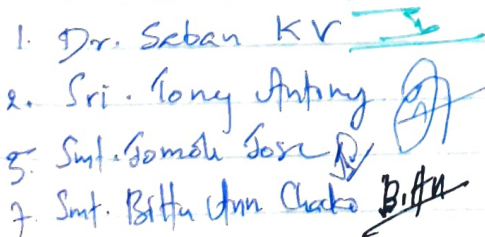 1. Dr. Seban KV
2. Sri. Tony Antony
5. Smt. Jomol Jose
7. Smt. Bittu Ann Chacko Bittu